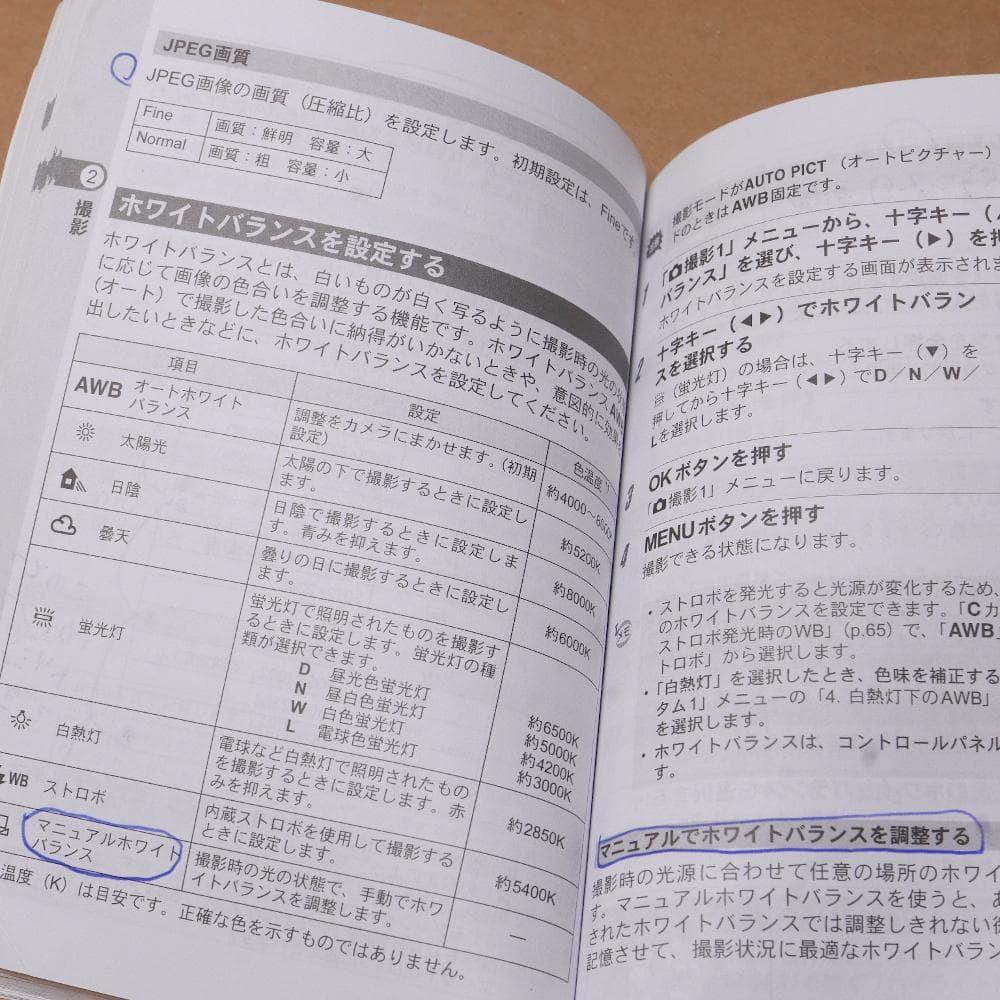 JPEG画質
JPEG画像の画質（圧縮比）を設定します。初期設定は、Fineです。
Fine 画質：鮮明 容量：大
Normal 画質：粗 容量：小
2
撮影
ホワイトバランスを設定する
ホワイトバランスとは、白いものが白く写るように撮影時の光の
に応じて画像の色合いを調整する機能です。ホワイトバランスAW
（オート）で撮影した色合いに納得がいかないときや、意図的に効果
出したいときなどに、ホワイトバランスを設定してください。
項目 設定 色温度
AWB オートホワイトバランス 調整をカメラにまかせます。（初期設定） 約4000～8000K
太陽光 太陽の下で撮影するときに設定します。 約5200K
日陰 日陰で撮影するときに設定します。青みを抑えます。 約8000K
曇天 曇りの日に撮影するときに設定します。 約6000K
蛍光灯 蛍光灯で照明されたものを撮影するときに設定します。蛍光灯の種類が選択できます。
D 昼光色蛍光灯 約6500K
N 昼白色蛍光灯 約5000K
W 白色蛍光灯 約4200K
L 電球色蛍光灯 約3000K
白熱灯 電球など白熱灯で照明されたものを撮影するときに設定します。赤みを抑えます。 約2850K
WB ストロボ 内蔵ストロボを使用して撮影するときに設定します。 約5400K
マニュアルホワイトバランス 撮影時の光の状態で、手動でホワイトバランスを調整します。 —
温度（K）は目安です。正確な色を示すものではありません。
撮影モードがAUTO PICT（オートピクチャー）
ドのときはAWB固定です。
1
「撮影1」メニューから、十字キー（
バランス」を選び、十字キー（▶）を押
ホワイトバランスを設定する画面が表示されま
2
十字キー（◀▶）でホワイトバラン
スを選択する
（蛍光灯）の場合は、十字キー（▼）を
押してから十字キー（◀▶）でD／N／W／
Lを選択します。
3
OKボタンを押す
「撮影1」メニューに戻ります。
4
MENUボタンを押す
撮影できる状態になります。
メモ
・ストロボを発光すると光源が変化するため、
のホワイトバランスを設定できます。「Cカ
ストロボ発光時のWB」（p.65）で、「AWB
トロボ」から選択します。
・「白熱灯」を選択したとき、色味を補正する
タム1」メニューの「4. 白熱灯下のAWB」
を選択します。
・ホワイトバランスは、コントロールパネル
す。
マニュアルでホワイトバランスを調整する
撮影時の光源に合わせて任意の場所のホワイ
す。マニュアルホワイトバランスを使うと、あ
されたホワイトバランスでは調整しきれない
記憶させて、撮影状況に最適なホワイトバラン